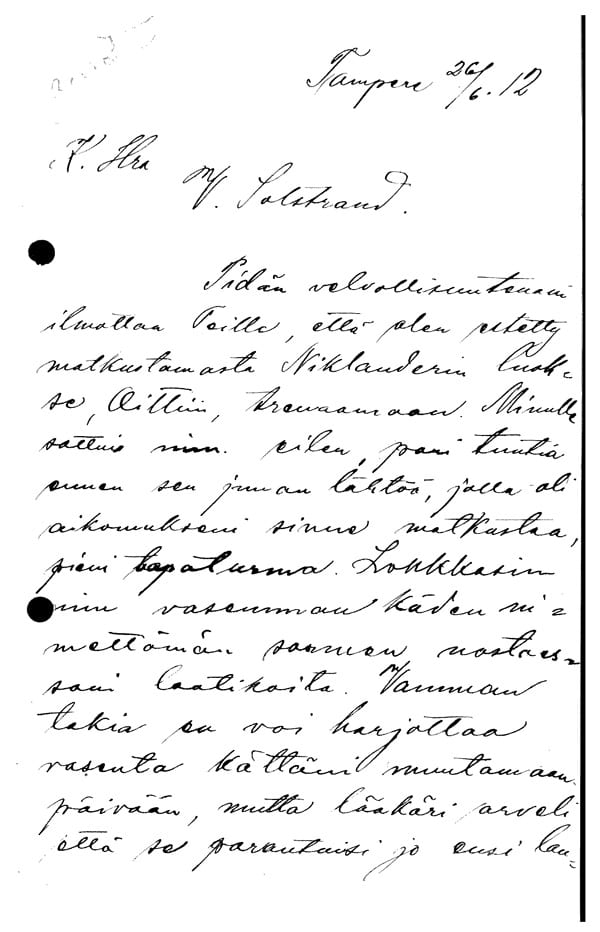 Tampere 26/6. 12
K. Hra
W. Solstrand.
Pidän velvollisuutenani
ilmottaa Teille, että olen estetty
matkustamasta Niklanderin luok-
se, Oittiin, trenaamaan. Minulle
sattui nim. eilen, pari tuntia
ennen sen junan lähtöä, jolla oli
aikomukseni sinne matkustaa,
pieni tapaturma. Loukkasin
nim vasemman käden ni-
mettömän sormen nostaes-
sani laatikoita. Vamman
takia en voi harjottaa
vasenta kättäni muutamaan
päivään, mutta lääkäri arveli
että se parantuisi jo ensi lau-